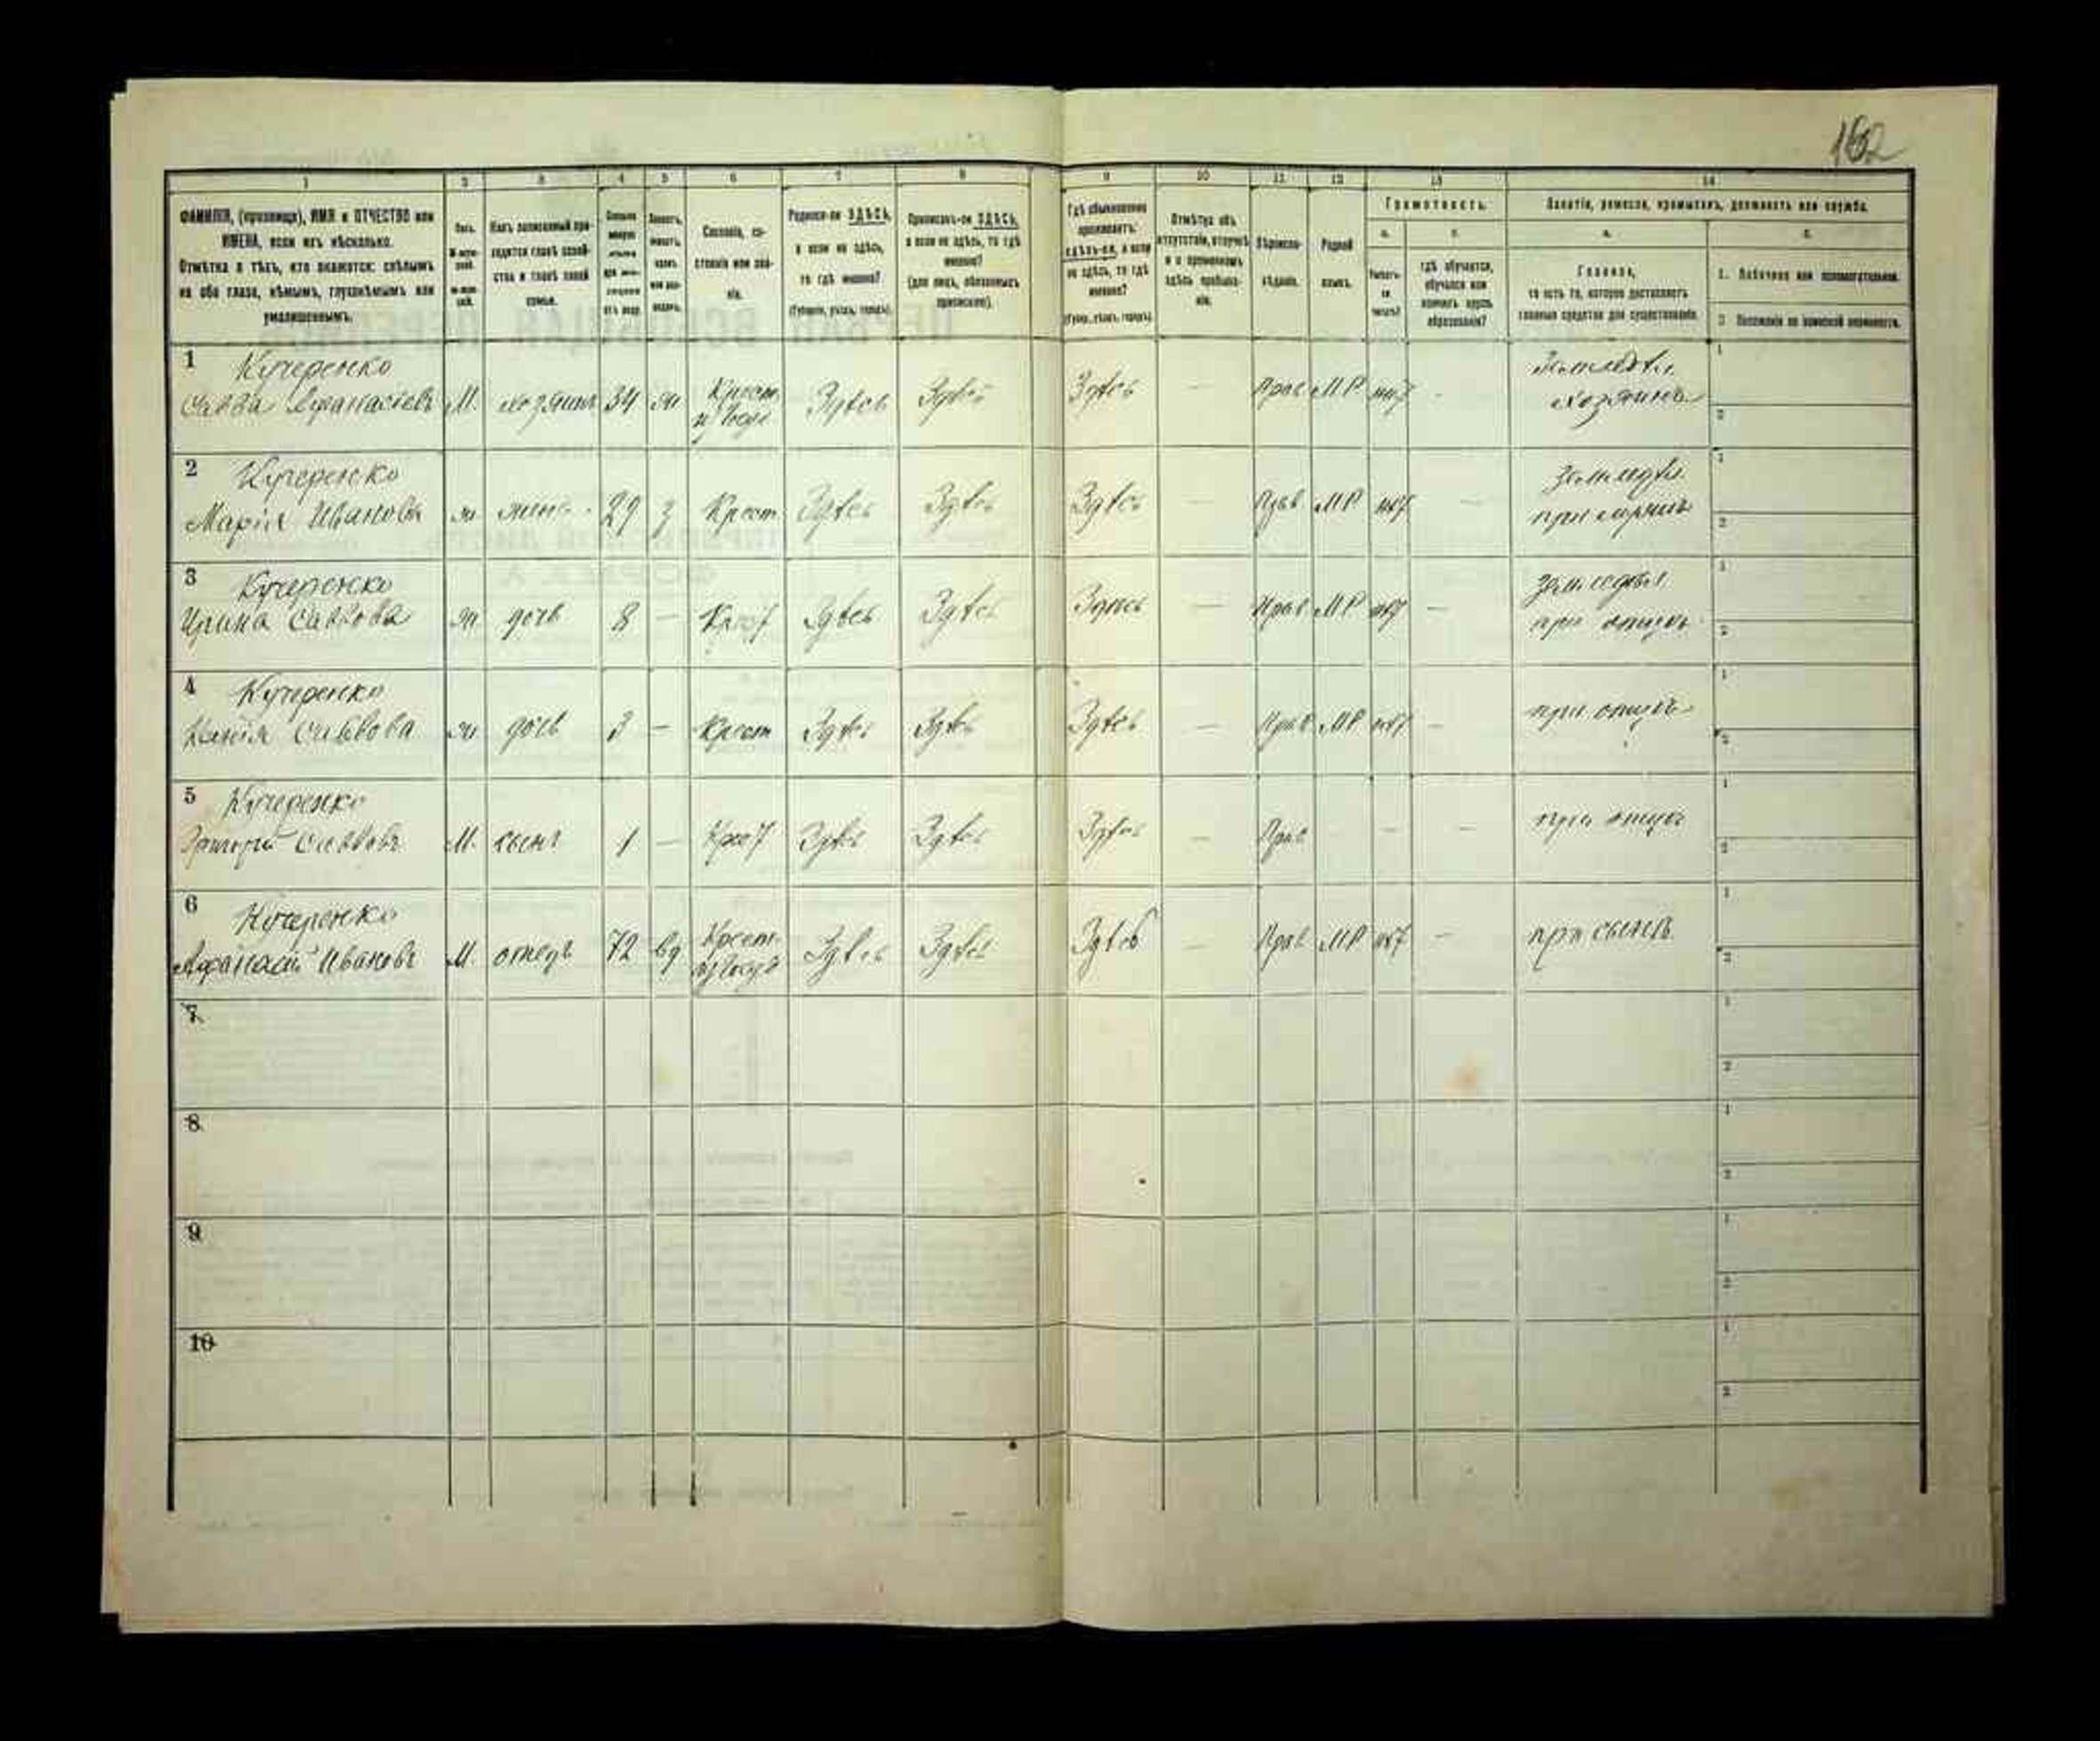 162
1 2 3 4 5 6 7 8 9 10 11 12 13 14
ФАМИЛІЯ, (прозвище), ИМЯ и ОТЧЕСТВО или
ИМЕНА, если ихъ нѣсколько.
Отмѣтка о тѣхъ, кто окажется: слѣпымъ
на оба глаза, нѣмымъ, глухонѣмымъ или
умалишеннымъ.
Полъ.
Какъ записанный при-
ходится главѣ хозяй-
ства и главѣ своей
семьи.
Сословіе, со-
стояніе или зва-
ніе.
Родился-ли ЗДѢСЬ,
а если не здѣсь,
то гдѣ именно?
(Губернія, уѣздъ, городъ).
Приписанъ-ли ЗДѢСЬ,
а если не здѣсь, то гдѣ
именно?
(для лицъ, обязанныхъ
припискою).
Гдѣ обыкновенно
проживаетъ:
здѣсь-ли, а если
не здѣсь, то гдѣ
именно?
(Губер., уѣздъ, городъ).
Отмѣтка объ
отсутствіи, отлучкѣ
и о временномъ
здѣсь пребыва-
ніи.
Вѣроиспо-
вѣданіе.
Родной
языкъ.
Грамотность.
а. б.
Умѣетъ-
ли
читать?
гдѣ обучается,
обучался или
кончилъ курсъ
образованія?
Занятіе, ремесло, промыселъ, должность или служба.
а. б.
Главное,
то есть то, которое доставляетъ
главныя средства для существованія.
1. Побочное или вспомогательное.
2. Положеніе по воинской повинности.
1 Кучеренко
Савва Афанасіевъ М. хозяинъ 34 ж Крест. Здѣсь Здѣсь Здѣсь — Прав МР нѣт Земледѣл. 1
хозяинъ 2
2 Кучеренко
Марія Иванова ж жена 29 з Крест Здѣсь Здѣсь Здѣсь — Прав МР нѣт — Земледѣл. 1
при мужѣ 2
3 Кучеренко
Ирина Саввова ж дочь 8 — Крест Здѣсь Здѣсь Здѣсь — Прав МР нѣт — Земледѣл 1
при отцѣ 2
4 Кучеренко
Саввова ж дочь 3 — Крест Здѣсь Здѣсь Здѣсь — Прав МР нѣт — при отцѣ 1
2
5 Кучеренко
Григорій Саввовъ М. сынъ 1 — Крест Здѣсь Здѣсь Здѣсь — Прав — — — при отцѣ 1
2
6 Кучеренко
Афанасій Ивановъ М. отецъ 72 вд Крест. Здѣсь Здѣсь Здѣсь — Прав МР нѣт — при сынѣ 1
2
7 1
2
8 1
2
9 1
2
10 1
2